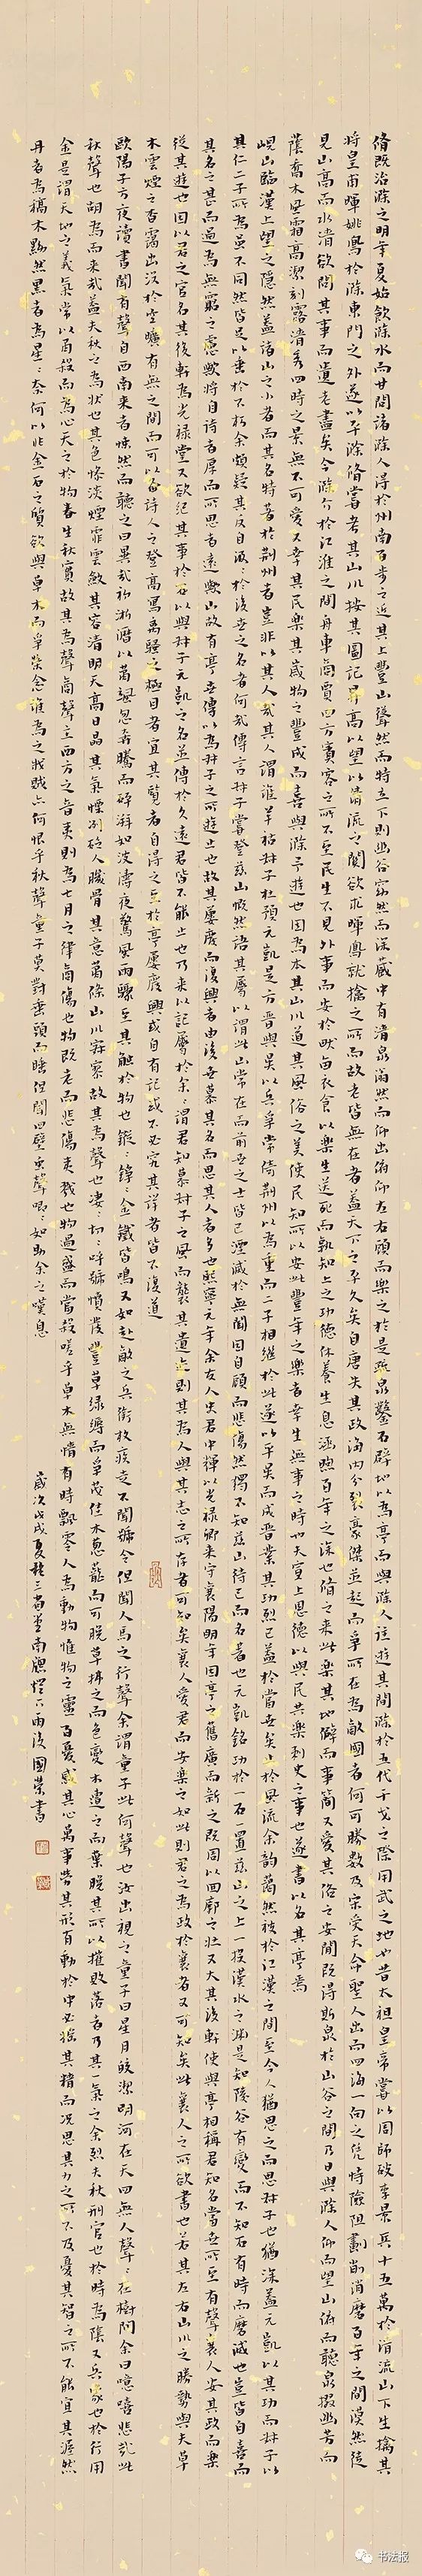 脩既治滁之明年夏始飲滁水而甘問諸滁人得於州南百步之近其上豐山聳然而特立下則幽谷窈然而深藏中有清泉滃然而仰出俯仰左右顧而樂之於是疏泉鑿石辟地以為亭而與滁人往遊其間滁於五代干戈之際用武之地也昔太祖皇帝嘗以周師破李景兵十五萬於清流山下生擒其
將皇甫暉姚鳳於滁東門之外遂以平滁脩嘗考其山川按其圖記昇高以望以清流之關欲求暉鳳就擒之所而故老皆無在者蓋天下之平久矣自唐失其政海內分裂豪傑並起而爭所在為敵國者何可勝數及宋受天命聖人出而四海一向之憑恃險阻劃削消磨百年之間漠然徒
見山高而水清欲問其事而遺老盡矣今滁介於江淮之間舟車商賈四方賓客之所不至民生不見外事而安於畎畝衣食以樂生送死而孰知上之功德休養生息涵煦百年之深也脩之來此樂其地僻而事簡又愛其俗之安閒既得斯泉於山谷之間乃日與滁人仰而望山俯而聽泉掇幽芳而
蔭喬木風霜高潔刻露清秀四時之景無不可愛又幸其民樂其歲物之豐成而喜與滁予遊也因為本其山川道其風俗之美使民知所以安此豐年之樂者幸生無事之時也夫宣上恩德以與民共樂刺史之事也遂書以名其亭焉
峴山臨漢上望之隱然蓋諸山之小者而其名特著於荊州者豈非以其人哉其人謂誰羊祜叔子杜預元凱是方晉與吳以兵爭常倚荊州以為重而二子相繼於此遂以平吳而成晉業其功烈已蓋於當世矣止於風流余韵藹然被於江漢之間至今人猶思之而思叔子也猶深蓋元凱以其功而叔子以
其仁二子所為虽不同然皆足以垂於不朽余頗疑其反自汲汲於後世之名者何哉傳言叔子嘗登茲山慨然語其屬以謂此山常在而前世之士皆已湮滅於無聞因自顧而悲傷然獨不知茲山待己而名著也元凱銘功於一石一置茲山之上一投漢水之淵是知陵谷有變而不知石有時而磨滅也豈皆自喜而
其名之甚而過為無窮之慮歟將自待者厚而所思者遠歟山故有亭世傳以為叔子之所遊止也故其屢廢而復興者由後世慕其名而思其人者多也熙寧元年余友人史君中輝以光祿卿來守襄陽明年因亭之舊廣而新之既周以回廊之壯又大其後軒使與亭相稱君知名當世所至有聲襄人安其政而樂
從其遊也因以君之官名其後軒為光祿堂又欲紀其事於石以與叔子元凱之名並傳於久遠君皆不能止也乃來以記屬於余余謂君知慕叔子之風而襲其遺迹則其為人與其志之所存者可知矣襄人愛君而安樂之如此則君之為政於襄者又可知矣此襄人之所欲書也若其左右山川之勝勢與夫草
木雲煙之杳靄出沒於空曠有無之間而可以備詩人之登高寫離騷之極目者宜其覽者自得之至於亭屢廢興或自有記或不必究其詳者皆不復道
歐陽子方夜讀書聞有聲自西南來者悚然而聽之曰異哉初淅瀝以蕭颯忽奔騰而砰湃如波濤夜驚風雨驟至其觸於物也鏦鏦錚錚金鐵皆鳴又如赴敵之兵銜枚疾走不聞號令但聞人馬之行聲余謂童子此何聲也汝出視之童子曰星月皎潔明河在天四無人聲聲在樹間余曰噫嘻悲哉此
秋聲也胡為而來哉蓋夫秋之為狀也其色慘淡煙霏雲斂其容清明天高日晶其氣慄冽砭人肌骨其意蕭條山川寂寥故其為聲也淒淒切切呼號憤發豐草綠縟而爭茂佳木蔥蘢而可悅草拂之而色變木遭之而葉脫其所以摧敗落者乃其一氣之余烈夫秋刑官也於時為陰又兵象也於行用
金是謂天地之義氣常以肅殺而為心天之於物春生秋實故其為聲商聲主西方之音夷則為七月之律商傷也物既老而悲傷夷戮也物過盛而當殺嗟乎草木無情有時飄零人為動物惟物之靈百憂感其心萬事勞其形有動於中必搖其精而況思其力之所不及憂其智之所不能宜其渥然
丹者為槁木黟然黑者為星星奈何以非金石之質欲與草木而爭榮念誰為之戕賊亦何恨乎秋聲童子莫對垂頭而睡但聞四壁蟲聲唧唧如助余之嘆息
歲次戊戌夏於三書堂南窗燈下雨後國榮書
书法报